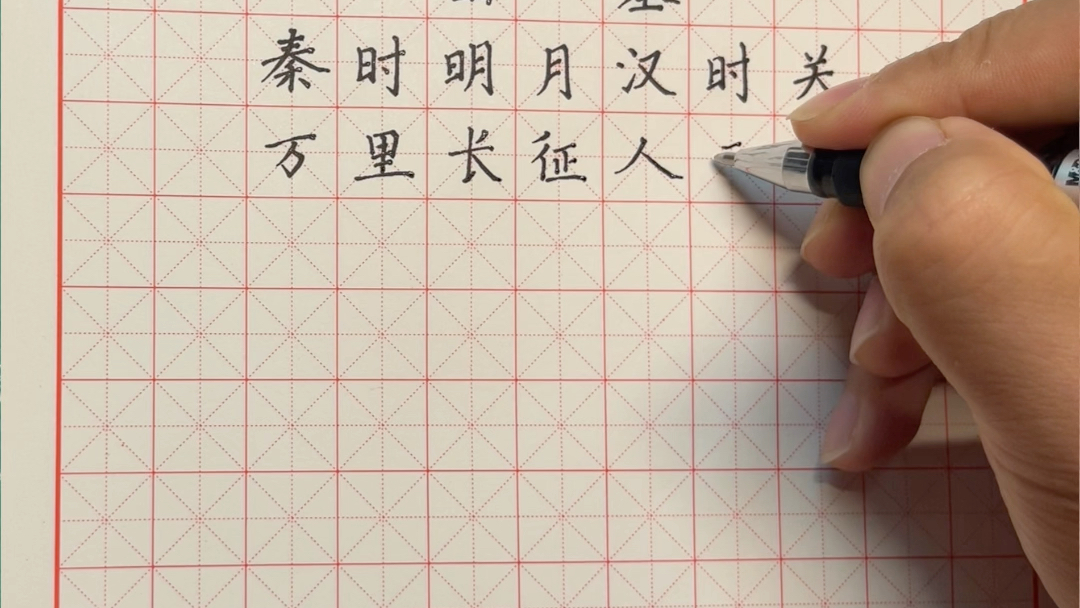 秦时明月汉时关
万里长征人